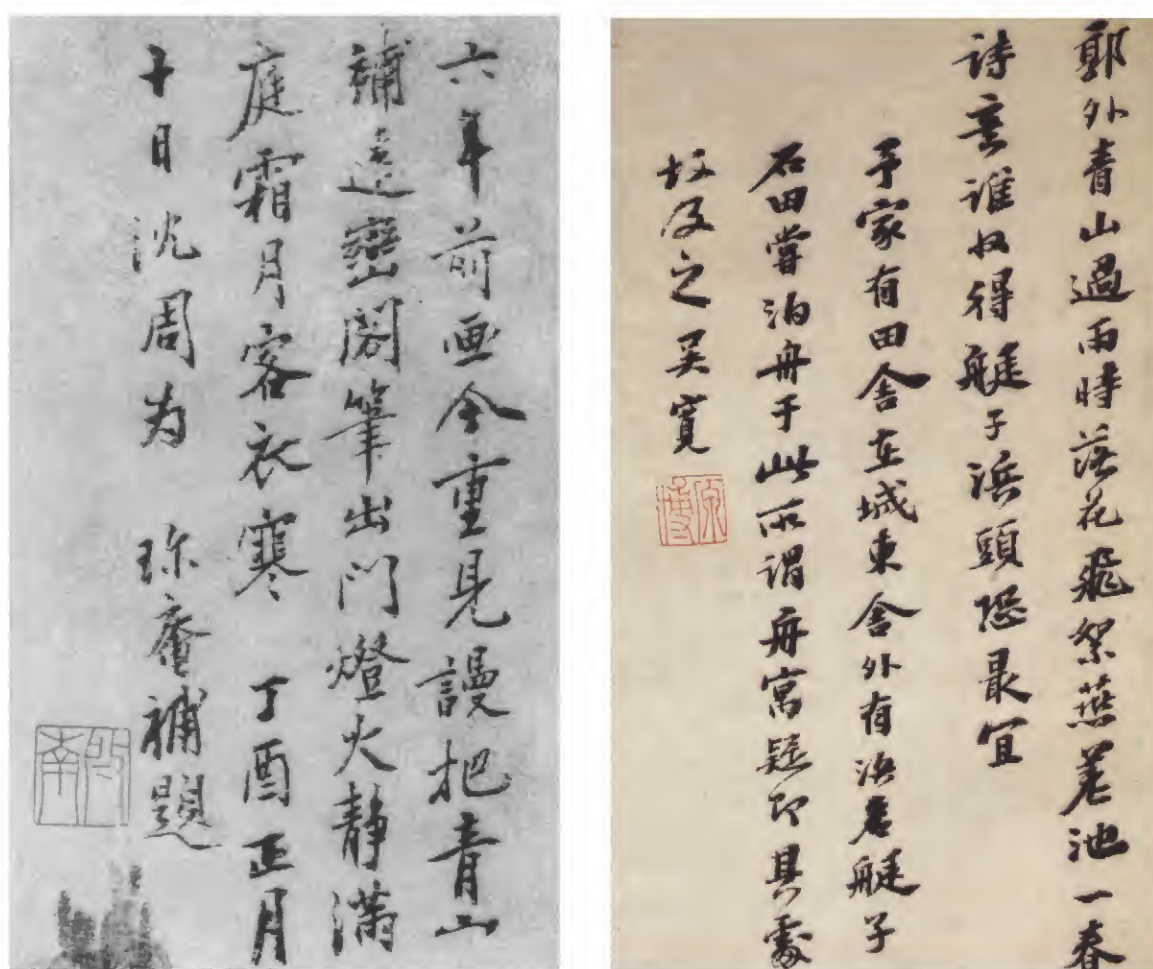 六年前画今重見謾把青山
補遠巒閣筆出門燈火静滿
庭霜月客衣寒 丁酉正月
十日沈周为 珎庵補題
啓南
郭外青山過雨時落花飛絮燕差池一春
詩意誰収得艇子浜頭恐最宜
予家有田舍在城東舍外有浜名艇子
石田嘗泊舟于此所謂舟寓疑即其處
故及之吴寛
原博